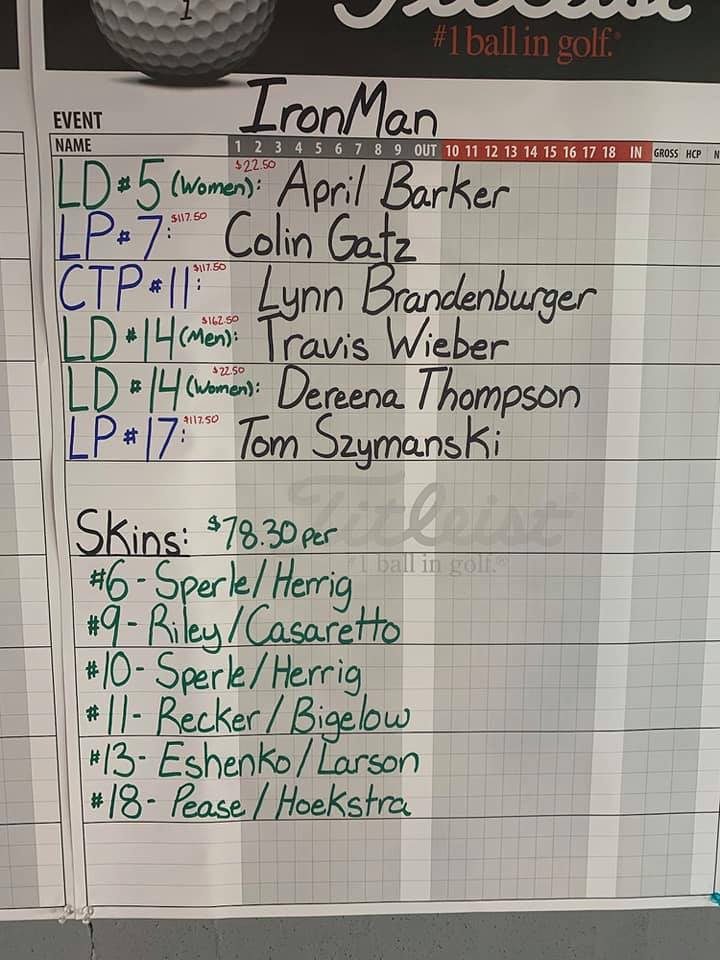 1
Titleist
#1 ball in golf.®
EVENT IronMan
NAME 1 2 3 4 5 6 7 8 9 OUT 10 11 12 13 14 15 16 17 18 IN GROSS HCP N
LD #5 (Women): $22.50 April Barker
LP #7: $117.50 Colin Gatz
CTP #11: $117.50 Lynn Brandenburger
LD #14 (Men): $162.50 Travis Wieber
LD #14 (Women): $22.50 Dereena Thompson
LP #17: $117.50 Tom Szymanski
Titleist
#1 ball in golf.®
Skins: $78.30 per
#6 - Sperle/Herrig
#9 - Riley/Casaretto
#10 - Sperle/Herrig
#11 - Recker/Bigelow
#13 - Eshenko/Larson
#18 - Pease/Hoekstra